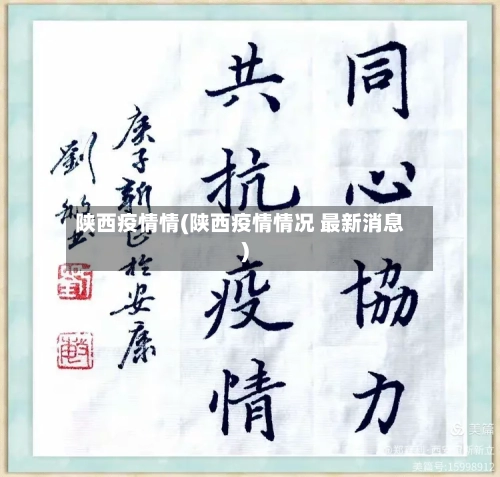 同心協力
共抗疫情
庚子新正於安康
劉敏書
陕西疫情情(陕西疫情情况 最新消息
)
美篇
美篇号:15998912